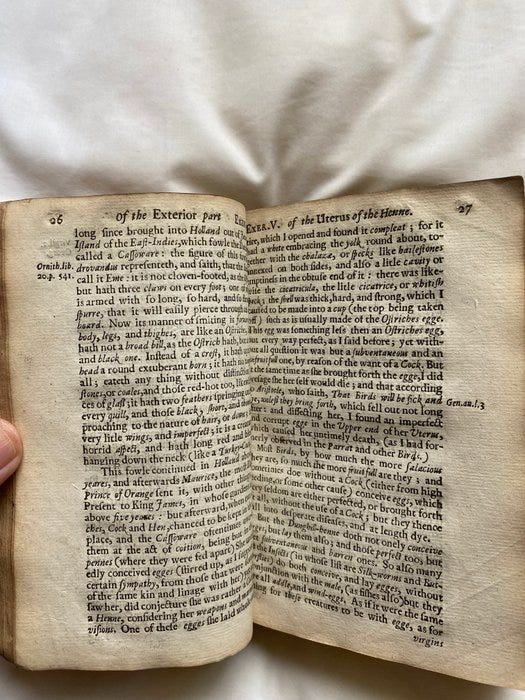 26 Of the Exterior part
long since brought into Holland out of
Island of the East-Indies, which fowle the
called a Cassoware: the figure of this
Ornith. lib. 20. p. 541.
drovandus representeth, and saith, that the
call it Eme: it is not cloven-footed, as the
but hath three claws on every foot; one of
is armed with so long, so hard, and
spurre, that it will easily pierce through
board. Now its manner of smiting is
body, legs, and thighs, are like an Ostrich
hath not a broad bill, as the Ostrich hath, but
and black one. Instead of a crest, it hath
head a round exuberant horn; it hath
all; catch any thing without
stones, or coales, and those red-hot too, like
ces of glass; it hath two feathers springing
every quill, and those black, short, and
proaching to the nature of hair, or down;
very little wings, and imperfect; it is a
horrid aspect, and hath long red and
hanging down the neck (like a Turkey
This fowle continued in Holland
yeares, and afterwards Maurice, the
Prince of Orange sent it, with other
Present to King James, in whose
above five yeares: but afterward, when
ther, Cock and Hen, chanced to be kept
place, and the Cassoware oftentimes
them at the act of coition, being but
pennes (where they were fed apart)
edly conceived egges (stirred up, as
certain sympathy, from those that were
of the same kin and linage with her)
saw her, did conjecture she was rather
a Henne, considering her weapons and
visions. One of these egges she laid
EXER. V. of the Uterus of the Henne. 27
which I opened and found it compleat; for it
had a white embracing the yolk round about, to-
gether with the chalazæ, or specks like hailestones
annexed on both sides, and also a little cavity or
emptiness in the obtuse end of it: there was like-
wise the cicatricula, the little cicatrice, or whitish
speck; the shell was thick, hard, and strong, which I
caused to be made into a cup (the top being taken
off) such as is usually made of the Ostriches egge.
This egg was something less then an Ostriches egg,
but every way perfect, as I said before; yet with-
out all question it was but a subventaneous and an
unfruitfull one, by reason of the want of a Cock. But
at the same time as she brought forth the egge, I did
presage she her self would die; and that according
to Aristotle, who saith, That Birds will be sick and
Gen. an. l. 3
die, unless they bring forth, which fell out not long
after: and dissecting her, I found an imperfect
and corrupt egge in the Upper end of her Uterus,
which caused her untimely death, (as I had for-
merly observed in the Parrot and other Birds.)
Most Birds, by how much the more salacious
they are, so much the more fruitfull are they; and
sometimes doe without a Cock (either from high
feeding, or some other cause) conceive eggs, which
very seldom are either perfected, or brought forth
at all, without the use of a Cock; but they thence
fall into desperate diseases, and at length dye.
But the Dunghill-henne doth not only conceive
egges, but lay them also; and those perfect too, but
subventaneous and barren ones. So also many
of the Insects (in whose list are Silk-worms and Butt-
erflies) do both conceive, and lay egges, without
conjunction with the male, (as fishes also) but they
are all addle, and wind-eggs. As if it were the same
thing for those creatures to be with egge, as for
virgins